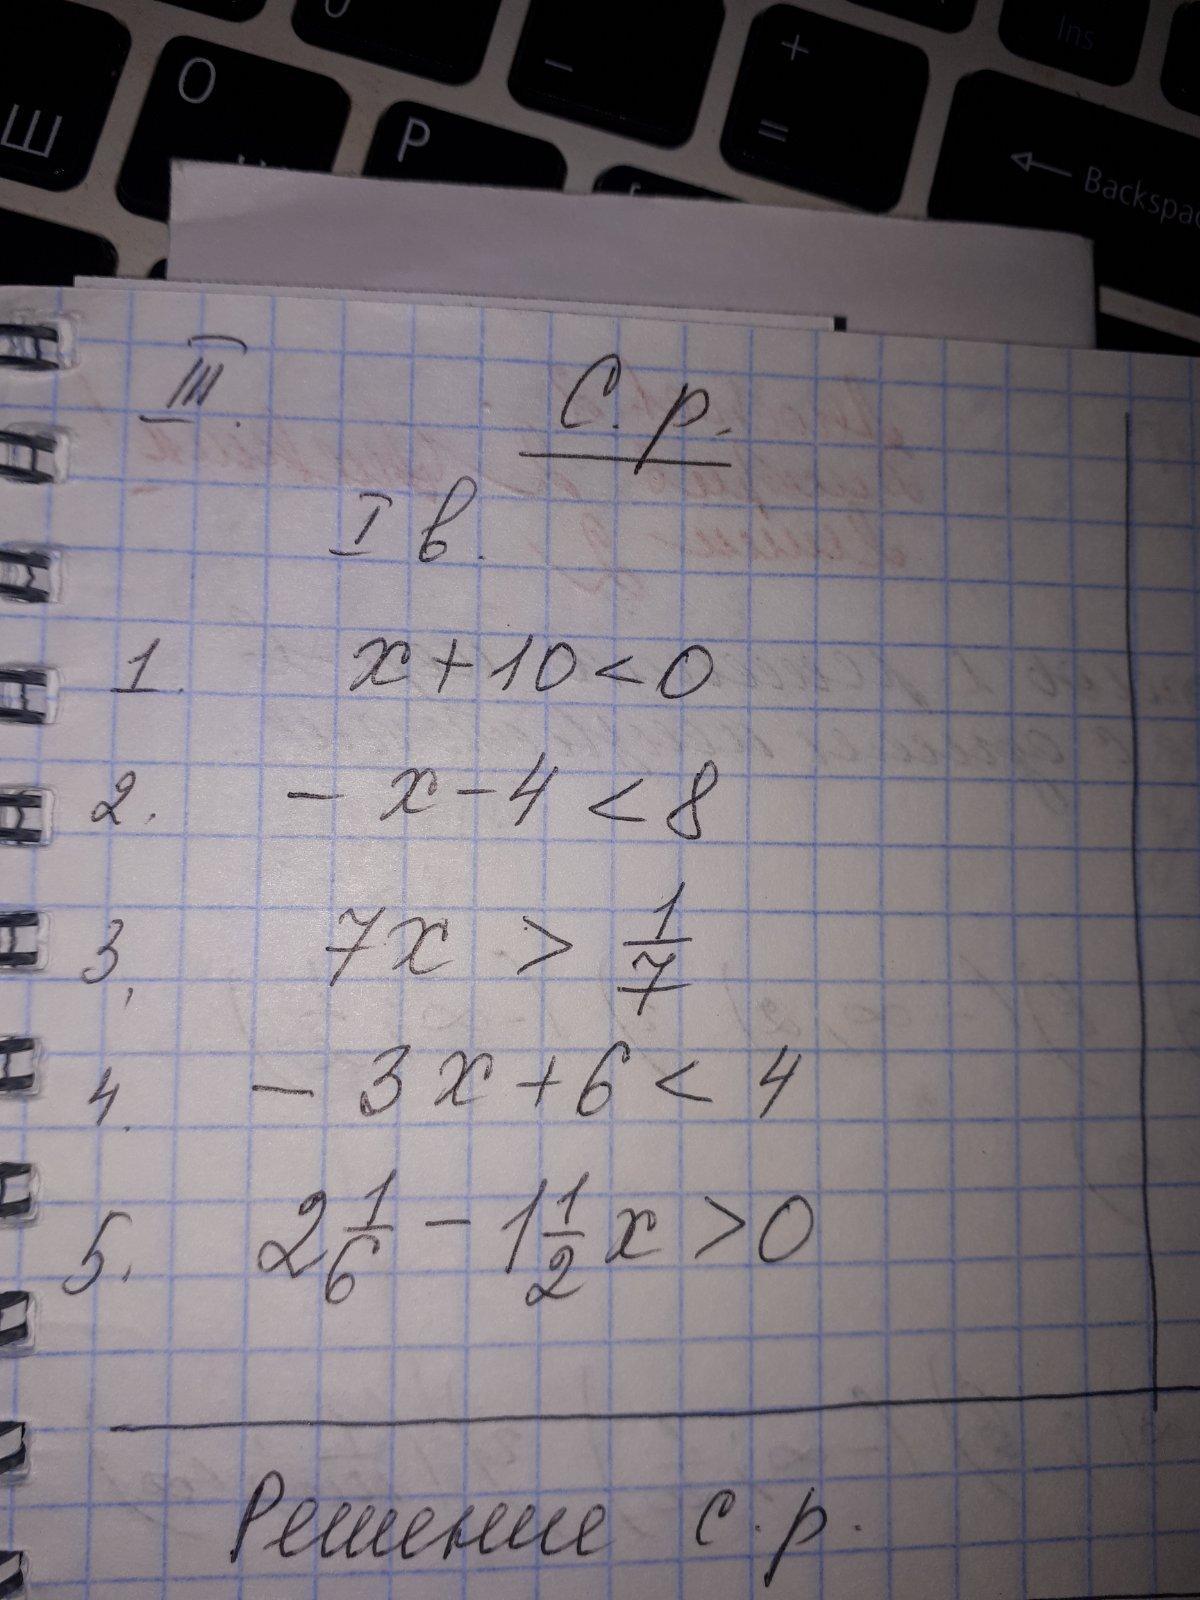 Ш
О
Р
-
+
=
Ins
Backspac
III.
С. р.
I в.
1. x + 10 < 0
2. - x - 4 < 8
3, 7x > 1/7
4. - 3x + 6 < 4
5. 2 1/6 - 1 1/2 x > 0
Решение с. р.